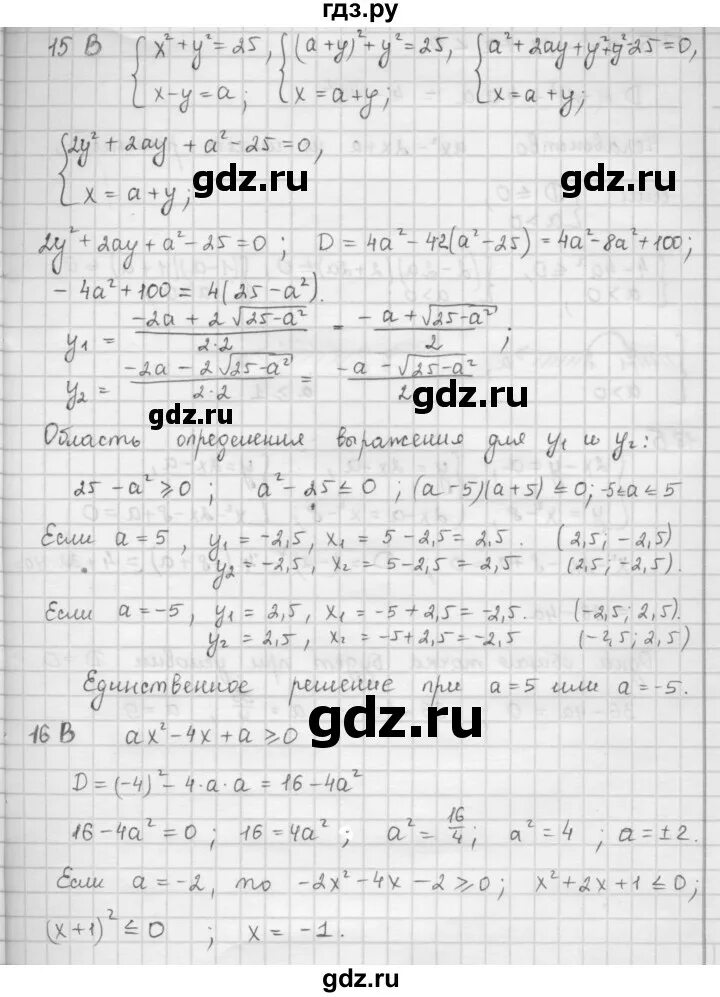 гдз.ру
15 В { x² + y² = 25, { (a+y)² + y² = 25, { a² + 2ay + y² + y² - 25 = 0,
x - y = a; x = a + y; x = a + y;
{ 2y² + 2ay + a² - 25 = 0,
x = a + y;
gdz.ru gdz.ru
2y² + 2ay + a² - 25 = 0 ; D = 4a² - 42(a² - 25) = 4a² - 8a² + 100;
- 4a² + 100 = 4(25 - a²).
y₁ = (-2a + 2√25-a²)/(2·2) = (-a + √25-a²)/2 ;
y₂ = (-2a - 2√25-a²)/(2·2) = (-a - √25-a²)/2
gdz.ru gdz.ru
Область определения выражения для y₁ и y₂:
25 - a² ⩾ 0 ; a² - 25 ⩽ 0 ; (a - 5)(a + 5) ⩽ 0; -5⩽a⩽5
gdz.ru
Если a = 5 , y₁ = -2,5, x₁ = 5 - 2,5 = 2,5 . (2,5; -2,5)
y₂ = -2,5, x₂ = 5 - 2,5 = 2,5 (2,5; -2,5).
gdz.ru gdz.ru
Если a = -5 , y₁ = 2,5, x₁ = -5 + 2,5 = -2,5. (-2,5; 2,5).
y₂ = 2,5 , x₂ = -5 + 2,5 = -2,5 (-2,5; 2,5)
Единственное решение при a = 5 или a = -5.
gdz.ru
16 В ax² - 4x + a ⩾ 0
D = (-4)² - 4·a·a = 16 - 4a²
gdz.ru gdz.ru
16 - 4a² = 0 ; 16 = 4a² ; a² = 16/4 ; a² = 4 ; a = ±2.
Если a = -2, то -2x² - 4x - 2 ⩾ 0 ; x² + 2x + 1 ⩽ 0;
gdz.ru
(x + 1)² ⩽ 0 ; x = -1.
gdz.ru